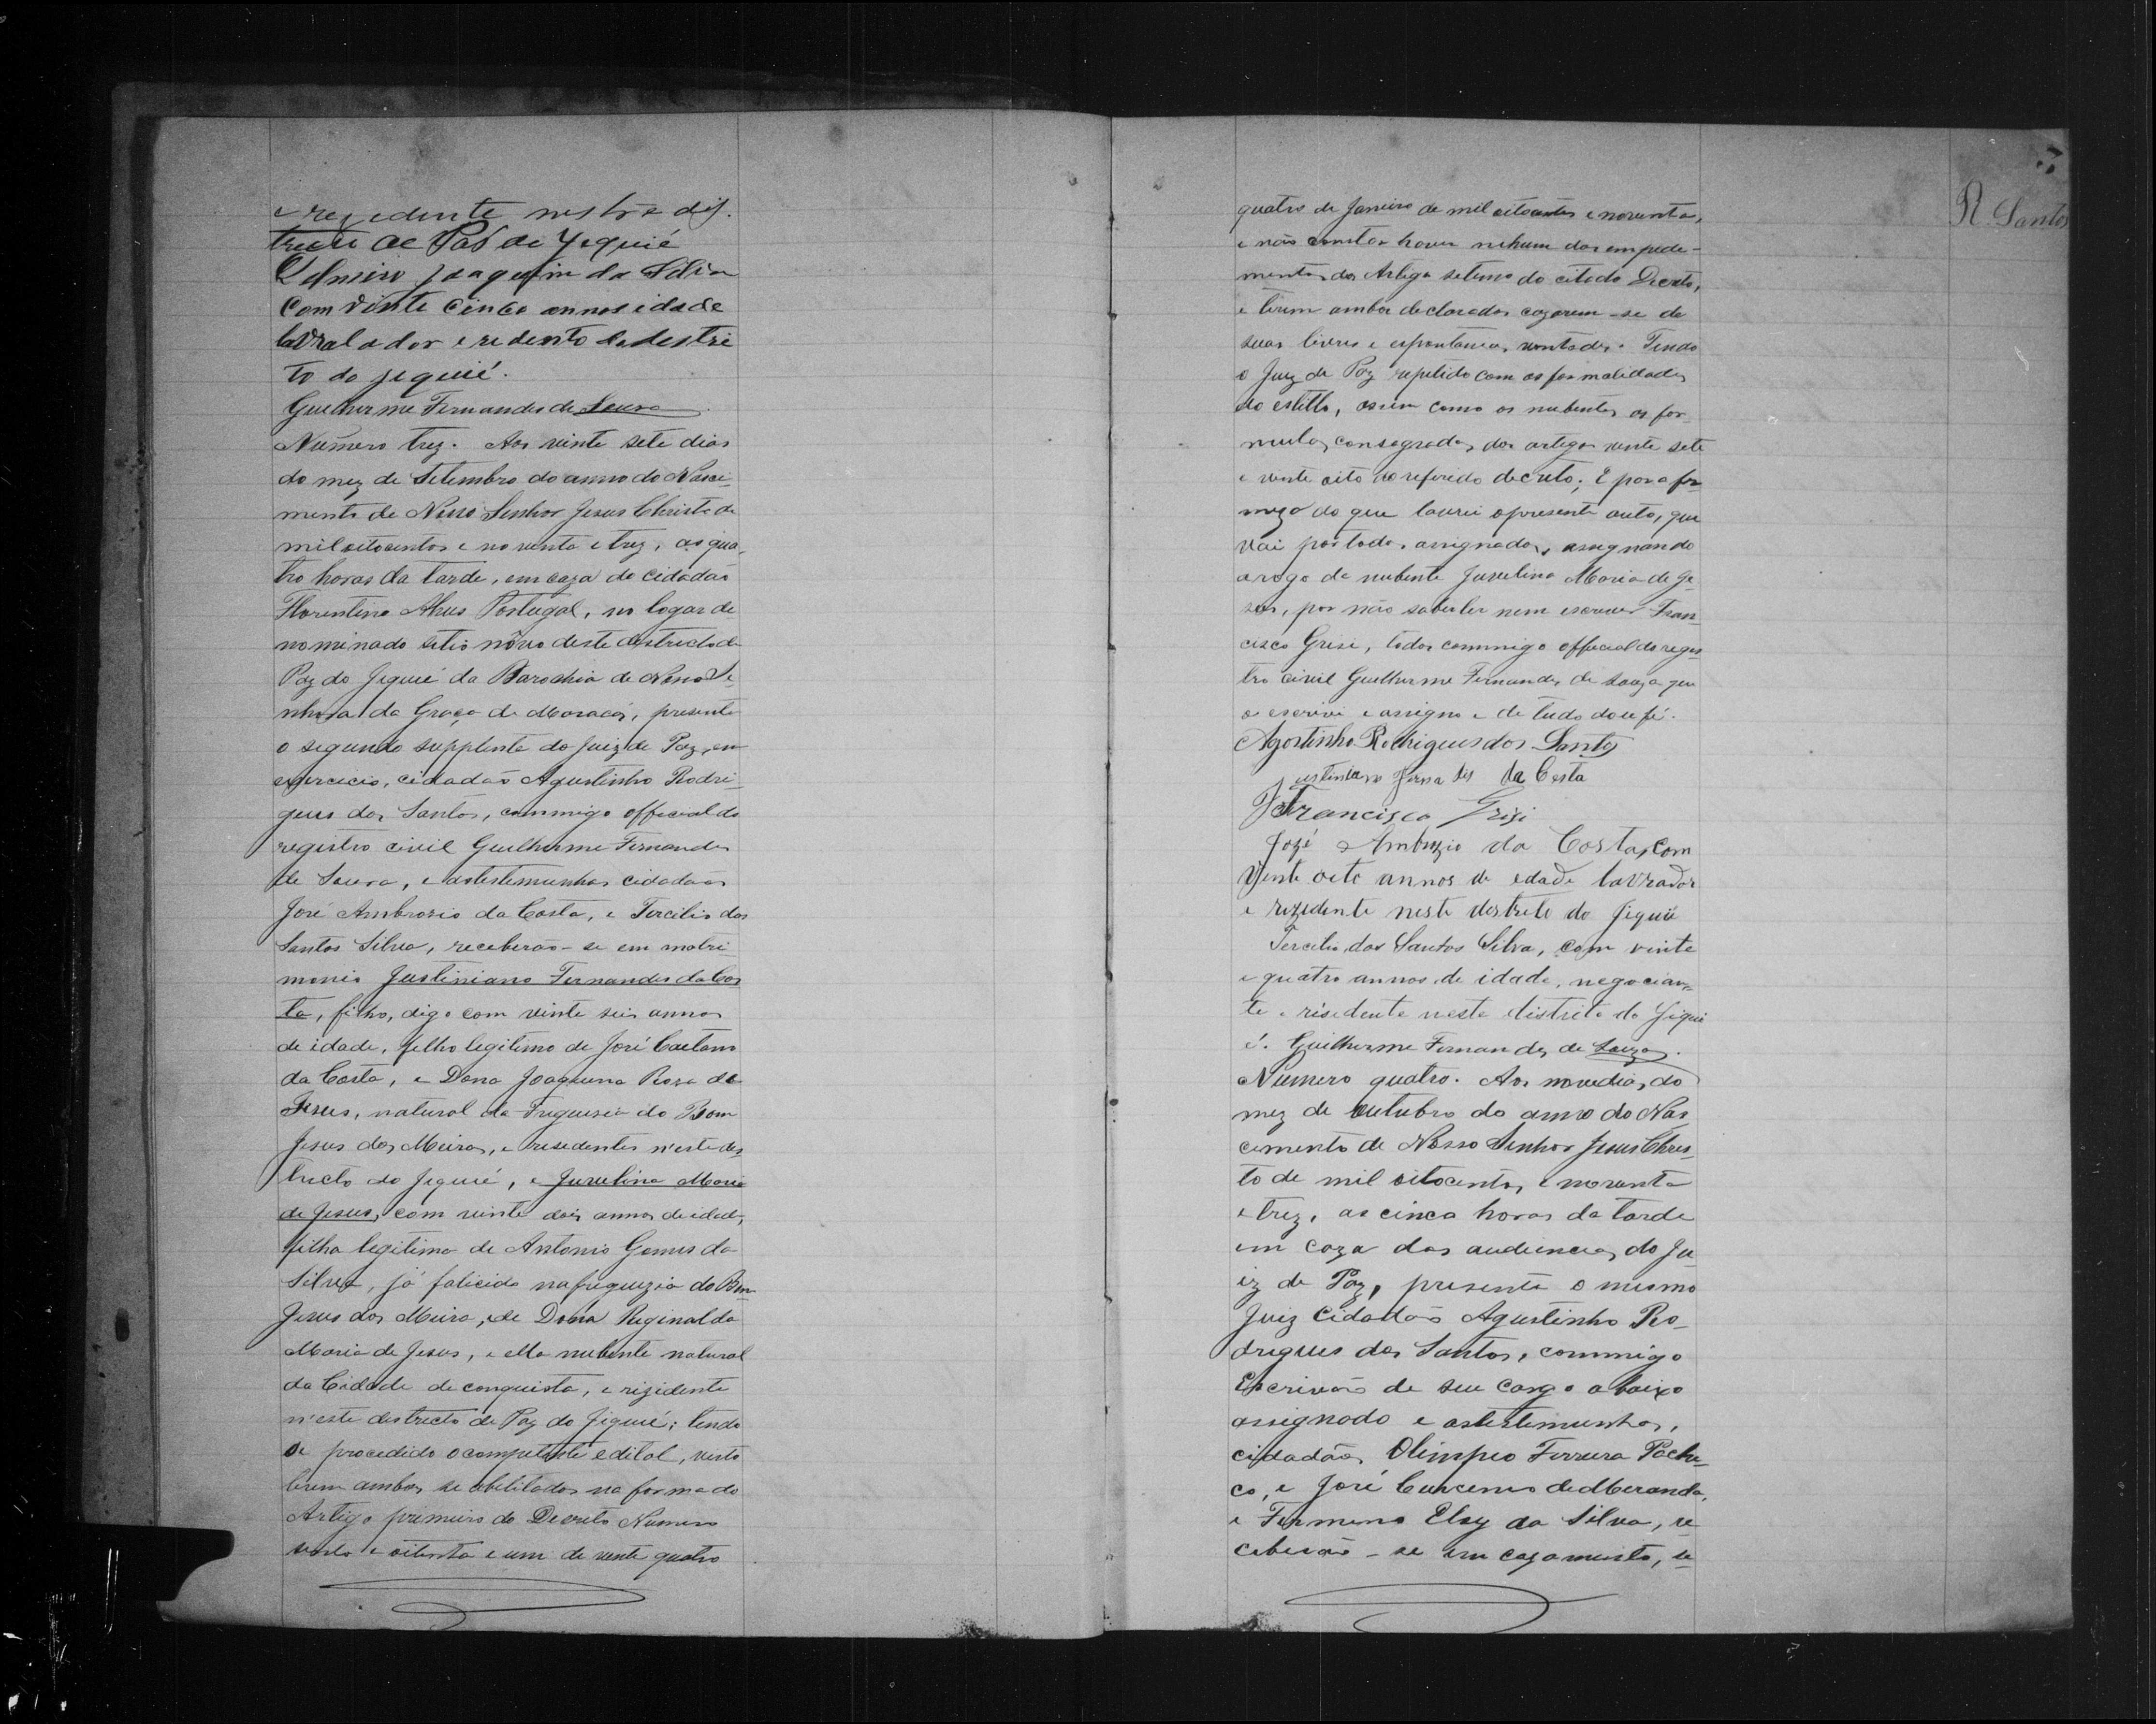 e rezedente nestre dis.
tricto de Pas de Yequié
Joaquim da Silva
com vinte cinco annos idade
lavralador e redento destri
to do jequié.
Guilherme Fernandes de Souza
Numero trez. Aos vinte sete dias
do mez de Setembro do anno do Nasci-
mento de Nosso Senhor Jesus Christo de
mil oitocentos e noventa e trez, as qua-
tro horas da tarde, em caza do cidadão
Florentino Alves Portugal, no logar de
nominado sitio nôvo deste destricto de
Paz do Jequié da Parochia de Nossa Se-
nhora da Graça de Maracás, presente
o segundo supplente do Juiz de Paz, em
exercicio, cidadão Agustinho Rodri-
gues dos Santos, commigo official do
registro civil Guilherme Fernandes
de Souza, e as testemunhas cidadãos
José Ambrosio da Costa, e Tercilio dos
Santos Silva, receberão-se em matri
monio Justiniano Fernandes da Cos
ta, filho, digo com vinte seis annos
de idade, filho legitimo de José Caetano
da Costa, e Dona Joaquina Roza de
Jesus, natural da Freguesia do Bom
Jesus dos Meiras, e residentes n'este des
tricto do Jequié, e Juvelina Maria
de Jesus, com vinte dois annos de idade,
filha legitima de Antonio Gomes da
Silva, já falicido na freguezia do Bom
Jesus dos Meira, e de Dona Reginalda
Maria de Jesus, e ella nubente natural
da Cidade de conquista, e rizidente
n'este destricto de Paz do Jiquié; tendo
se procedido o competente edital, visto
terem ambos se abilitados na forma do
Artigo primeiro do Decreto Numero
cento e oitenta e um de vente quatro
quatro de Janeiro de mil oitocentos e noventa,
e não constar haver nehum dos empede-
mentos do Artigo setimo do citado Decreto,
e terem ambos declarados cazarem-se de
suas livres e espontanias vontades. Tendo
o Juiz de Paz repetido com as formalidades
do estillo, assim como os nubentes as for-
mulas consagradas dos artigos vente sete
e vente oito do referido decreto; E para fir
meza do que lavrei o presente auto, que
vai por todos assignados, assegnando
a rogo da nubente Juvelina Maria de Je
sus, por não saber ler nem escrever Fran
cisco Grisi, todos commigo official do regis
tro civil Guilherme Fernandes de Souza que
o escrivi e assigno e de tudo dou fé.
Agostinho Rodrigues dos Santos
Justiniano Fernades da Costa
Francisco Grisi
Jozé Ambrozio da Costa, com
Vente oito annos de edade lavrador
e rezedente neste destreto do Jiquié
Tercilio dos Santos Silva, com vinte
e quatro annos de idade, negocian-
te e risedente neste distrito do Jiqui
é. Guilherme Fernandes de Souza.
Numero quatro. Aos nove dias do
mez de outubro do anno do Nas
cemento de Nosso Senhor Jesus Chris
to de mil oitocentos e noventa
e trez, as cinco horas da tarde
em caza das audiencias do Ju
iz de Paz, presente o mesmo
Juiz Cidadão Agustinho Ro-
drigues dos Santos, commigo
Escrivão de seu cargo abaixo
assignado e as testemunhas,
cidadãos Olimpio Ferreira Pache
co, e José de Meranda,
e Fermeno Eloy da Silva, re
ceberão-se em cazamento, se
R Santos